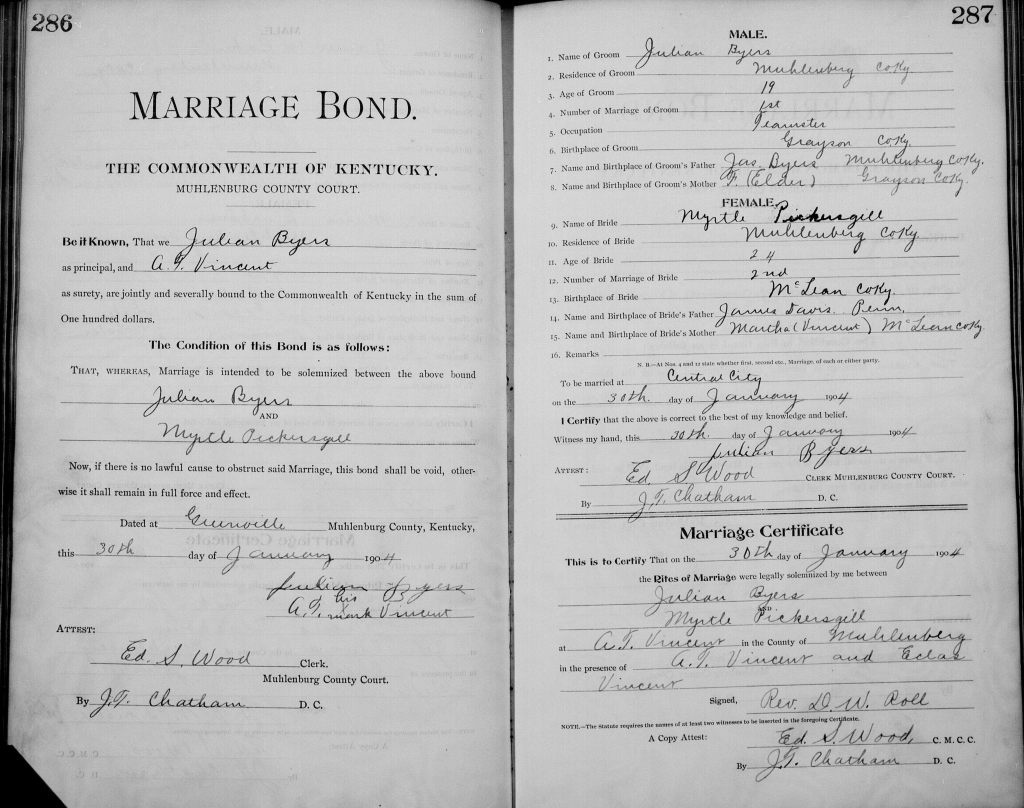 286
MARRIAGE BOND.
THE COMMONWEALTH OF KENTUCKY.
MUHLENBURG COUNTY COURT.
Be it Known, That we Julian Byers
as principal, and A. T. Vincent
as surety, are jointly and severally bound to the Commonwealth of Kentucky in the sum of
One hundred dollars.
The Condition of this Bond is as follows:
THAT, WHEREAS, Marriage is intended to be solemnized between the above bound
Julian Byers
AND
Myrtle Pickersgill
Now, if there is no lawful cause to obstruct said Marriage, this bond shall be void, other-
wise it shall remain in full force and effect.
Dated at Greenville Muhlenburg County, Kentucky,
this 30th day of January 1904
Julian Byers
his
A. T. mark Vincent
ATTEST:
Ed. S. Wood Clerk.
Muhlenburg County Court.
By J. T. Chatham D. C.
287
MALE.
1. Name of Groom Julian Byers
2. Residence of Groom Muhlenberg Co Ky.
3. Age of Groom 19
4. Number of Marriage of Groom 1st
5. Occupation Teamster
6. Birthplace of Groom Grayson Co Ky.
7. Name and Birthplace of Groom's Father Jas. Byers Muhlenberg Co Ky.
8. Name and Birthplace of Groom's Mother F. (Elder) Grayson Co Ky.
FEMALE.
9. Name of Bride Myrtle Pickersgill
10. Residence of Bride Muhlenberg Co Ky
11. Age of Bride 24
12. Number of Marriage of Bride 2nd
13. Birthplace of Bride McLean Co Ky.
14. Name and Birthplace of Bride's Father James Davis. Penn.
15. Name and Birthplace of Bride's Mother Martha (Vincent) McLean Co Ky.
16. Remarks
N. B.—At Nos. 4 and 12 state whether first, second etc., Marriage, of each or either party.
To be married at Central City
on the 30th. day of January 1904
I Certify that the above is correct to the best of my knowledge and belief.
Witness my hand, this 30th. day of January 1904
Julian Byers
ATTEST: Ed S Wood CLERK MUHLENBURG COUNTY COURT.
By J. T. Chatham D. C.
Marriage Certificate
This is to Certify That on the 30th day of January 1904
the Rites of Marriage were legally solemnized by me between
Julian Byers
AND
Myrtle Pickersgill
at A. T. Vincent in the County of Muhlenberg
in the presence of A. T. Vincent and Eclas
Vincent
Signed, Rev. D. W. Roll
NOTE.—The Statute requires the names of at least two witnesses to be inserted in the foregoing Certificate.
A Copy Attest: Ed. S. Wood, C. M. C. C.
By J. T. Chatham D. C.